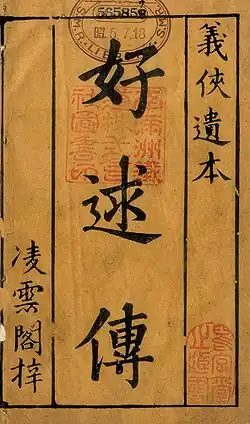 義俠遺本
好逑傳
凌雲閣梓
565859
昭.5.7.18